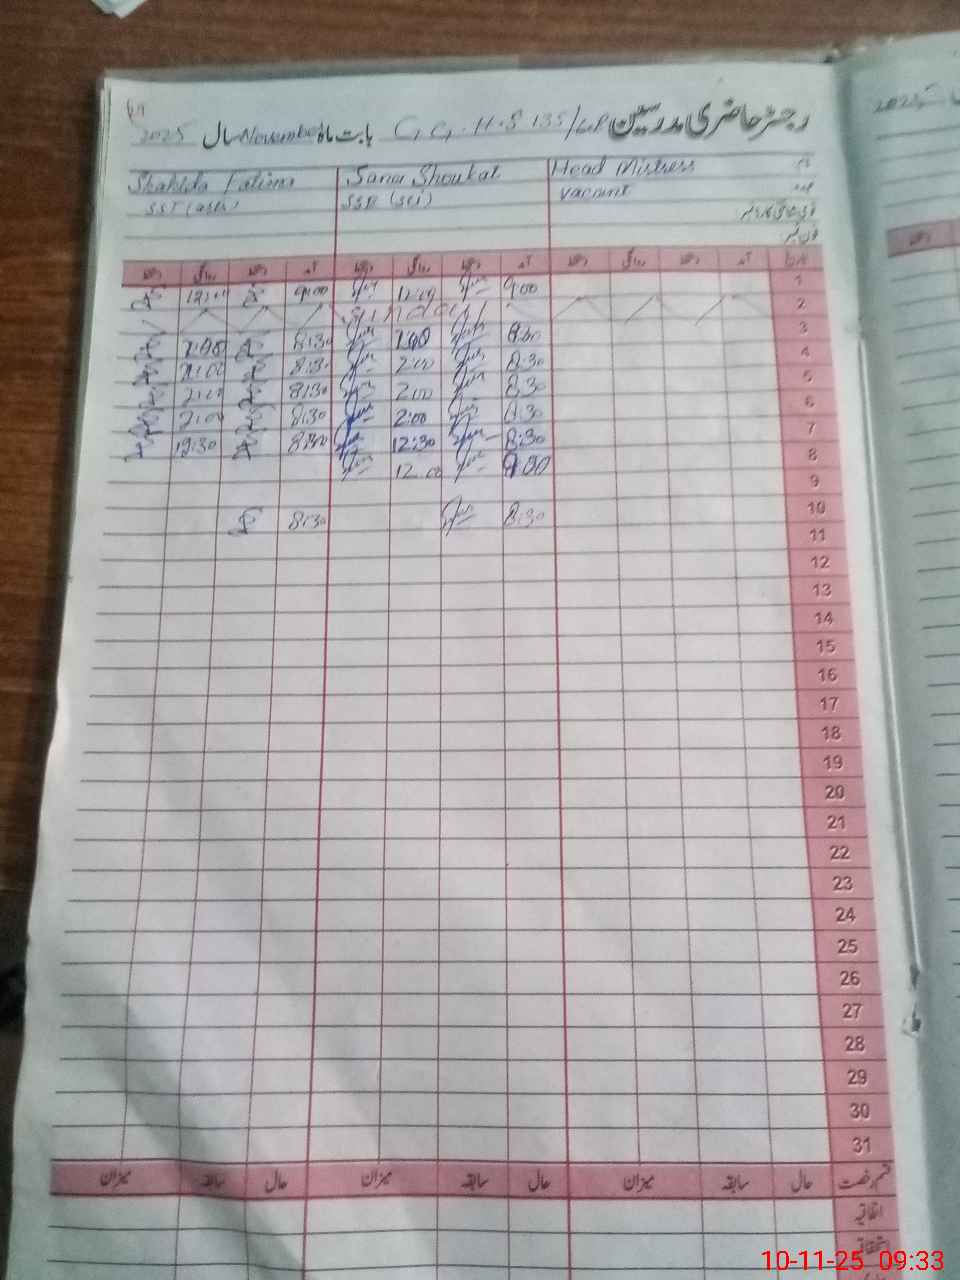 رجسٹر حاضری مدرسین G.G.H.S 135/ بابت ماہ November سال 2025
Head Mistress Sana Shoukat Shahida Fatima
Vacant SSE (sci) SST
فون نمبر
آمد دستخط روانگی دستخط آمد دستخط روانگی دستخط آمد دستخط روانگی دستخط
1 9:00 12:00 9:00 12:00
2 Sunday
3 8:30 8:30
4 8:30 2:00 8:30 2:00
5 8:30 2:00 8:30 2:00
6 8:30 2:00 8:30 2:00
7 8:30 12:30 8:30 12:30
8 12:00
9
10 8:30 8:30
11
12
13
14
15
16
17
18
19
20
21
22
23
24
25
26
27
28
29
30
31
قسم رخصت حال سابقہ میزان حال سابقہ میزان حال سابقہ میزان
اتفاقیہ
استحقاقیہ
10-11-25 09:33